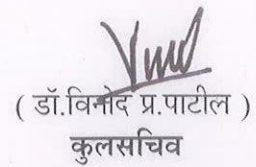 ( डॉ.विनोद प्र.पाटील )
कुलसचिव